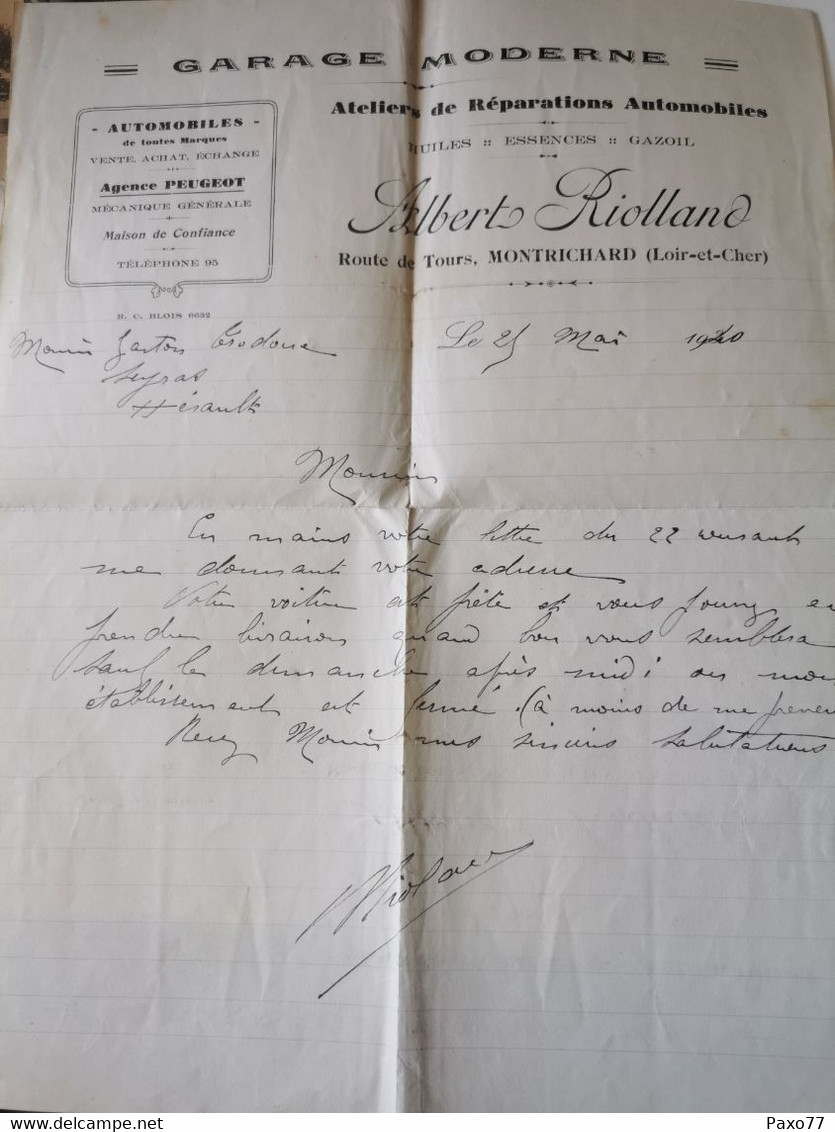 GARAGE MODERNE
Ateliers de Réparations Automobiles
HUILES :: ESSENCES :: GAZOIL
Albert Riolland
Route de Tours, MONTRICHARD (Loir-et-Cher)
- AUTOMOBILES -
de toutes Marques
VENTE, ACHAT, ÉCHANGE
Agence PEUGEOT
MÉCANIQUE GÉNÉRALE
Maison de Confiance
TÉLÉPHONE 95
R. C. BLOIS 6632
Le 25 Mai 1940
Gaston
Hérault
Monsieur
En mains votre lettre du 22 courant
me donnant votre adresse
Votre voiture est prête et vous pouvez en
prendre livraison quand bon vous semblera
sauf le dimanche après midi ou mon
établissement est fermé. (à moins de me preven
Recevez Monsieur mes sincères salutations
Riolland
delcampe.net
Paxo77